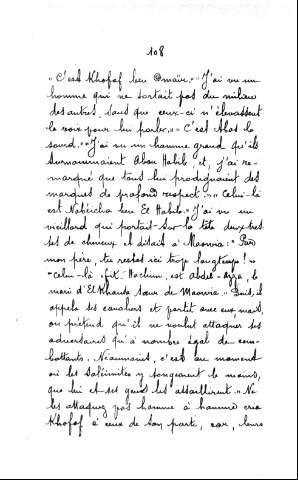 108
" C'est Khofaf ben Omaïr. " " J'ai vu un
homme qui ne sortait pas du milieu
des autres, sans que ceux-ci n'élevassent
la voix pour lui parler. " " C'est Abas le
sourd. " " J'ai vu un homme grand qu'ils
surnommaient Abou Habib et, j'ai re-
marqué que tous lui prodiguaient des
marques de profond respect. " " Celui-là
est Nobéicha ben El Habib. " " J'ai vu un
vieillard qui portait sur la tête deux tres-
ses de cheveux et disait à Maowia : " Par
mon père, tu restes ici trop longtemps ! " "
" Celui-là, fit Hachem, est Abdel-Ozza, le
mari d'El Khansa sœur de Maowia. " Puis, il
appela ses cavaliers et partit avec eux mais,
on prétend qu'il ne voulut attaquer ses
adversaires qu'à nombre égal de com-
battants. Néanmoins, c'est au moment
où les Soléimites y songeaient le moins,
que lui et ses gens les assaillirent. " Ne
les attaquez pas homme à homme cria
Khofaf à ceux de son parti, car, leurs